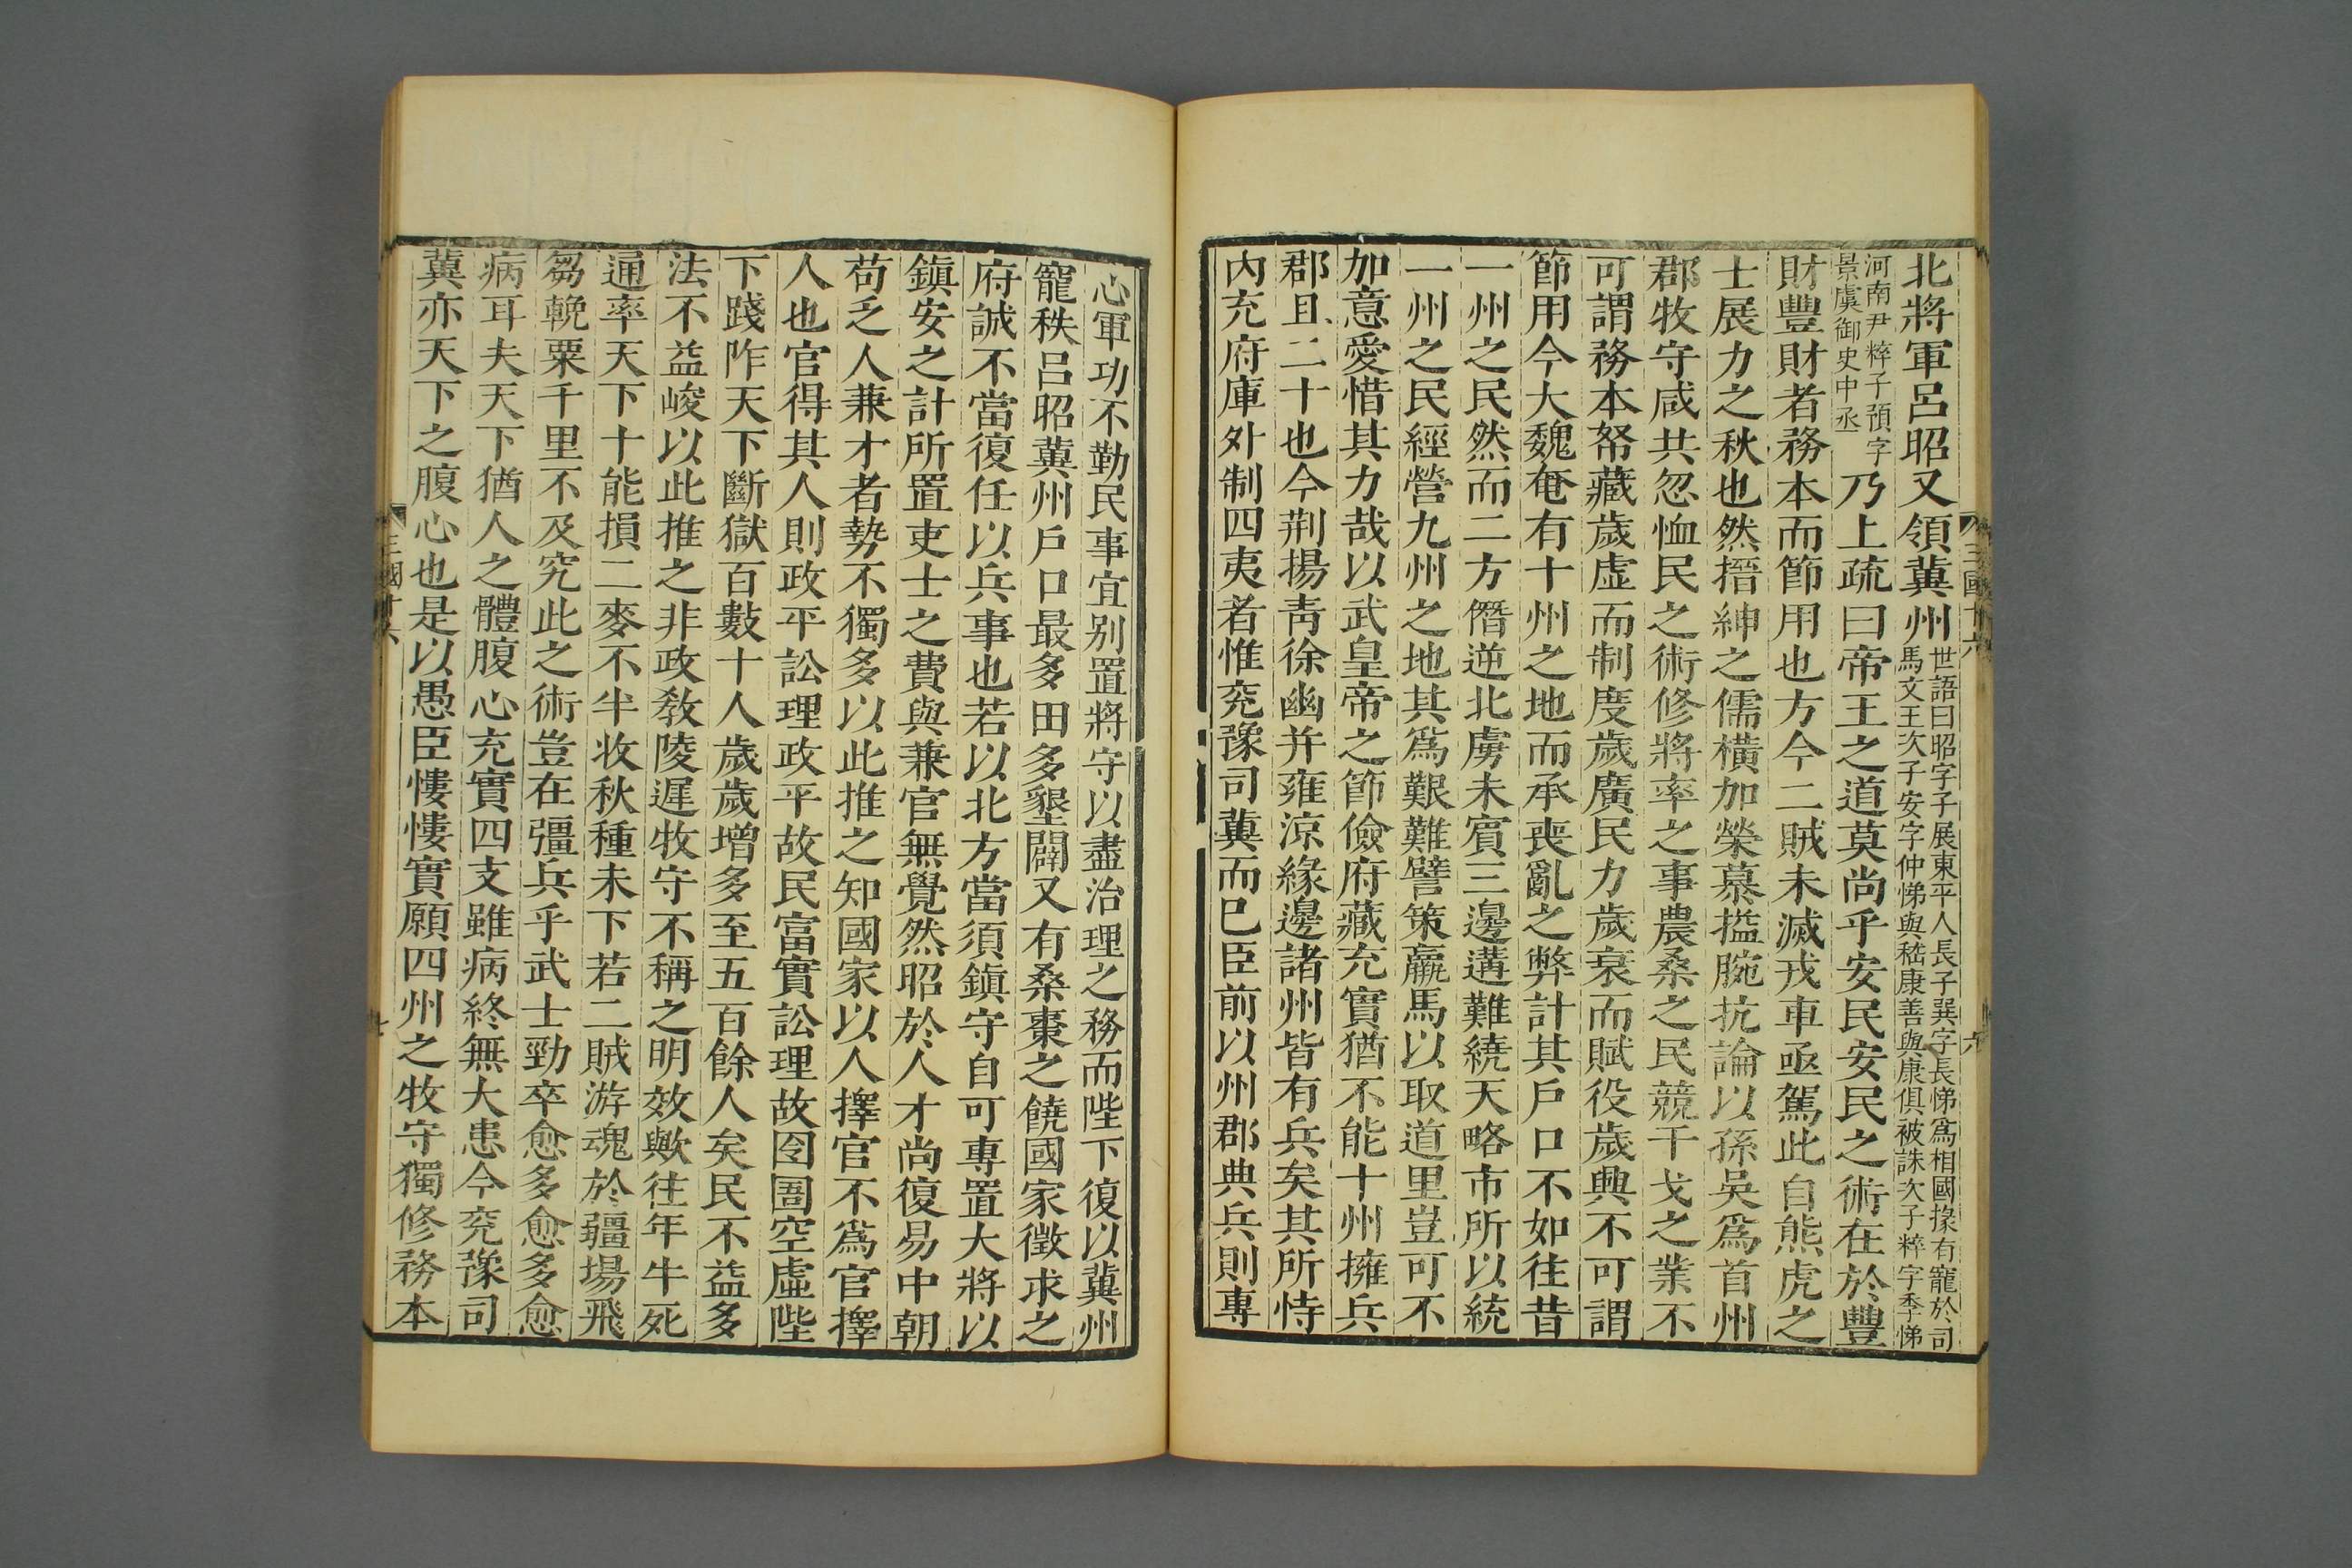 北將軍呂昭又領冀州世語曰昭字子展東平人長子巽字長悌爲相國掾有寵於司
馬文王次子安字仲悌與嵇康善與康俱被誅次子粹字季悌
河南尹粹子預字
景虞御史中丞
乃上疏曰帝王之道莫尚乎安民安民之術在於豐
財豐財者務本而節用也方今二賊未滅戎車亟駕此自熊虎之
士展力之秋也然搢紳之儒橫加榮慕搤腕抗論以孫吳爲首州
郡牧守咸共忽恤民之術修將率之事農桑之民競干戈之業不
可謂務本帑藏歲虛而制度歲廣民力歲衰而賦役歲興不可謂
節用今大魏奄有十州之地而承喪亂之弊計其戶口不如往昔
一州之民然而二方僭逆北虜未賓三邊遘難繞天略市所以統
一州之民經營九州之地其爲艱難譬策羸馬以取道里豈可不
加意愛惜其力哉以武皇帝之節儉府藏充實猶不能十州擁兵
郡且二十也今荆揚青徐幽并雍涼緣邊諸州皆有兵矣其所恃
內充府庫外制四夷者惟兖豫司冀而已臣前以州郡典兵則專
三國十六
六
心軍功不勤民事宜别置將守以盡治理之務而陛下復以冀州
寵秩呂昭冀州戶口最多田多墾闢又有桑棗之饒國家徵求之
府誠不當復任以兵事也若以北方當須鎮守自可專置大將以
鎮安之計所置吏士之費與兼官無覺然昭於人才尚復易中朝
苟乏人兼才者勢不獨多以此推之知國家以人擇官不爲官擇
人也官得其人則政平訟理政平故民富實訟理故囹圄空虛陛
下踐阼天下斷獄百數十人歲歲增多至五百餘人矣民不益多
法不益峻以此推之非政敎陵遲牧守不稱之明效歟往年牛死
通率天下十能損二麥不半收秋種未下若二賊游魂於疆場飛
芻輓粟千里不及究此之術豈在彊兵乎武士勁卒愈多愈多愈
病耳夫天下猶人之體腹心充實四支雖病終無大患今兖豫司
冀亦天下之腹心也是以愚臣慺慺實願四州之牧守獨修務本
三國十六
七